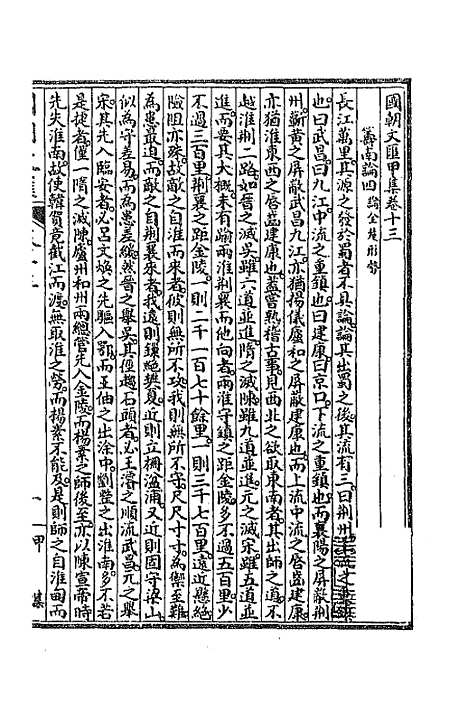 國朝文匯甲集卷十三
籌南論四論全楚形勢
長江萬里其源之發於蜀者不具論論其出蜀之後其流有三曰荆州上流之重鎮
也曰武昌曰九江中流之重鎮也曰建康曰京口下流之重鎮也而襄陽之屏蔽荆
州蘄黄之屏蔽武昌九江亦猶揚儀廬和之屏蔽建康也而上流中流之唇齒建康
亦猶淮東西之唇齒建康也葢嘗熟稽古事見西北之欲取東南者其出師之道不
越淮荆二路如晉之滅吴雖六道並進隋之滅陳雖九道並進元之滅宋雖五道並
進而要其大概未有踰兩淮荆襄而他向者兩淮守鎮之距金陵多不過五百里少
不過三百里荆襄之距金陵一則二千一百七十餘里一則三千七百里遠近懸絕
險阻亦殊故敵之自淮而來者彼則無所不攻我則無所不守尺尺寸寸為禦至難
為患最迫而敵之自荆襄來者我遠則鎮繞樊夏近則立柵湓浦又近則固守梁山
似為守差易而為患差緩然晉之舉吴其徑趨石頭者必王濬之順流武昌元之舉
宋其先入臨安者必吕文焕之先驅入鄂而王伷之出涂中劉整之出淮南多不若
是捷者僅一隋之滅陳廬州和州兩總管先入金陵而楊素之師後至亦以陳宣帝時
先失淮南故使韓賀竟截江而渡無取淮之勞而楊素不能及是則師之自淮甸而
一
甲
集